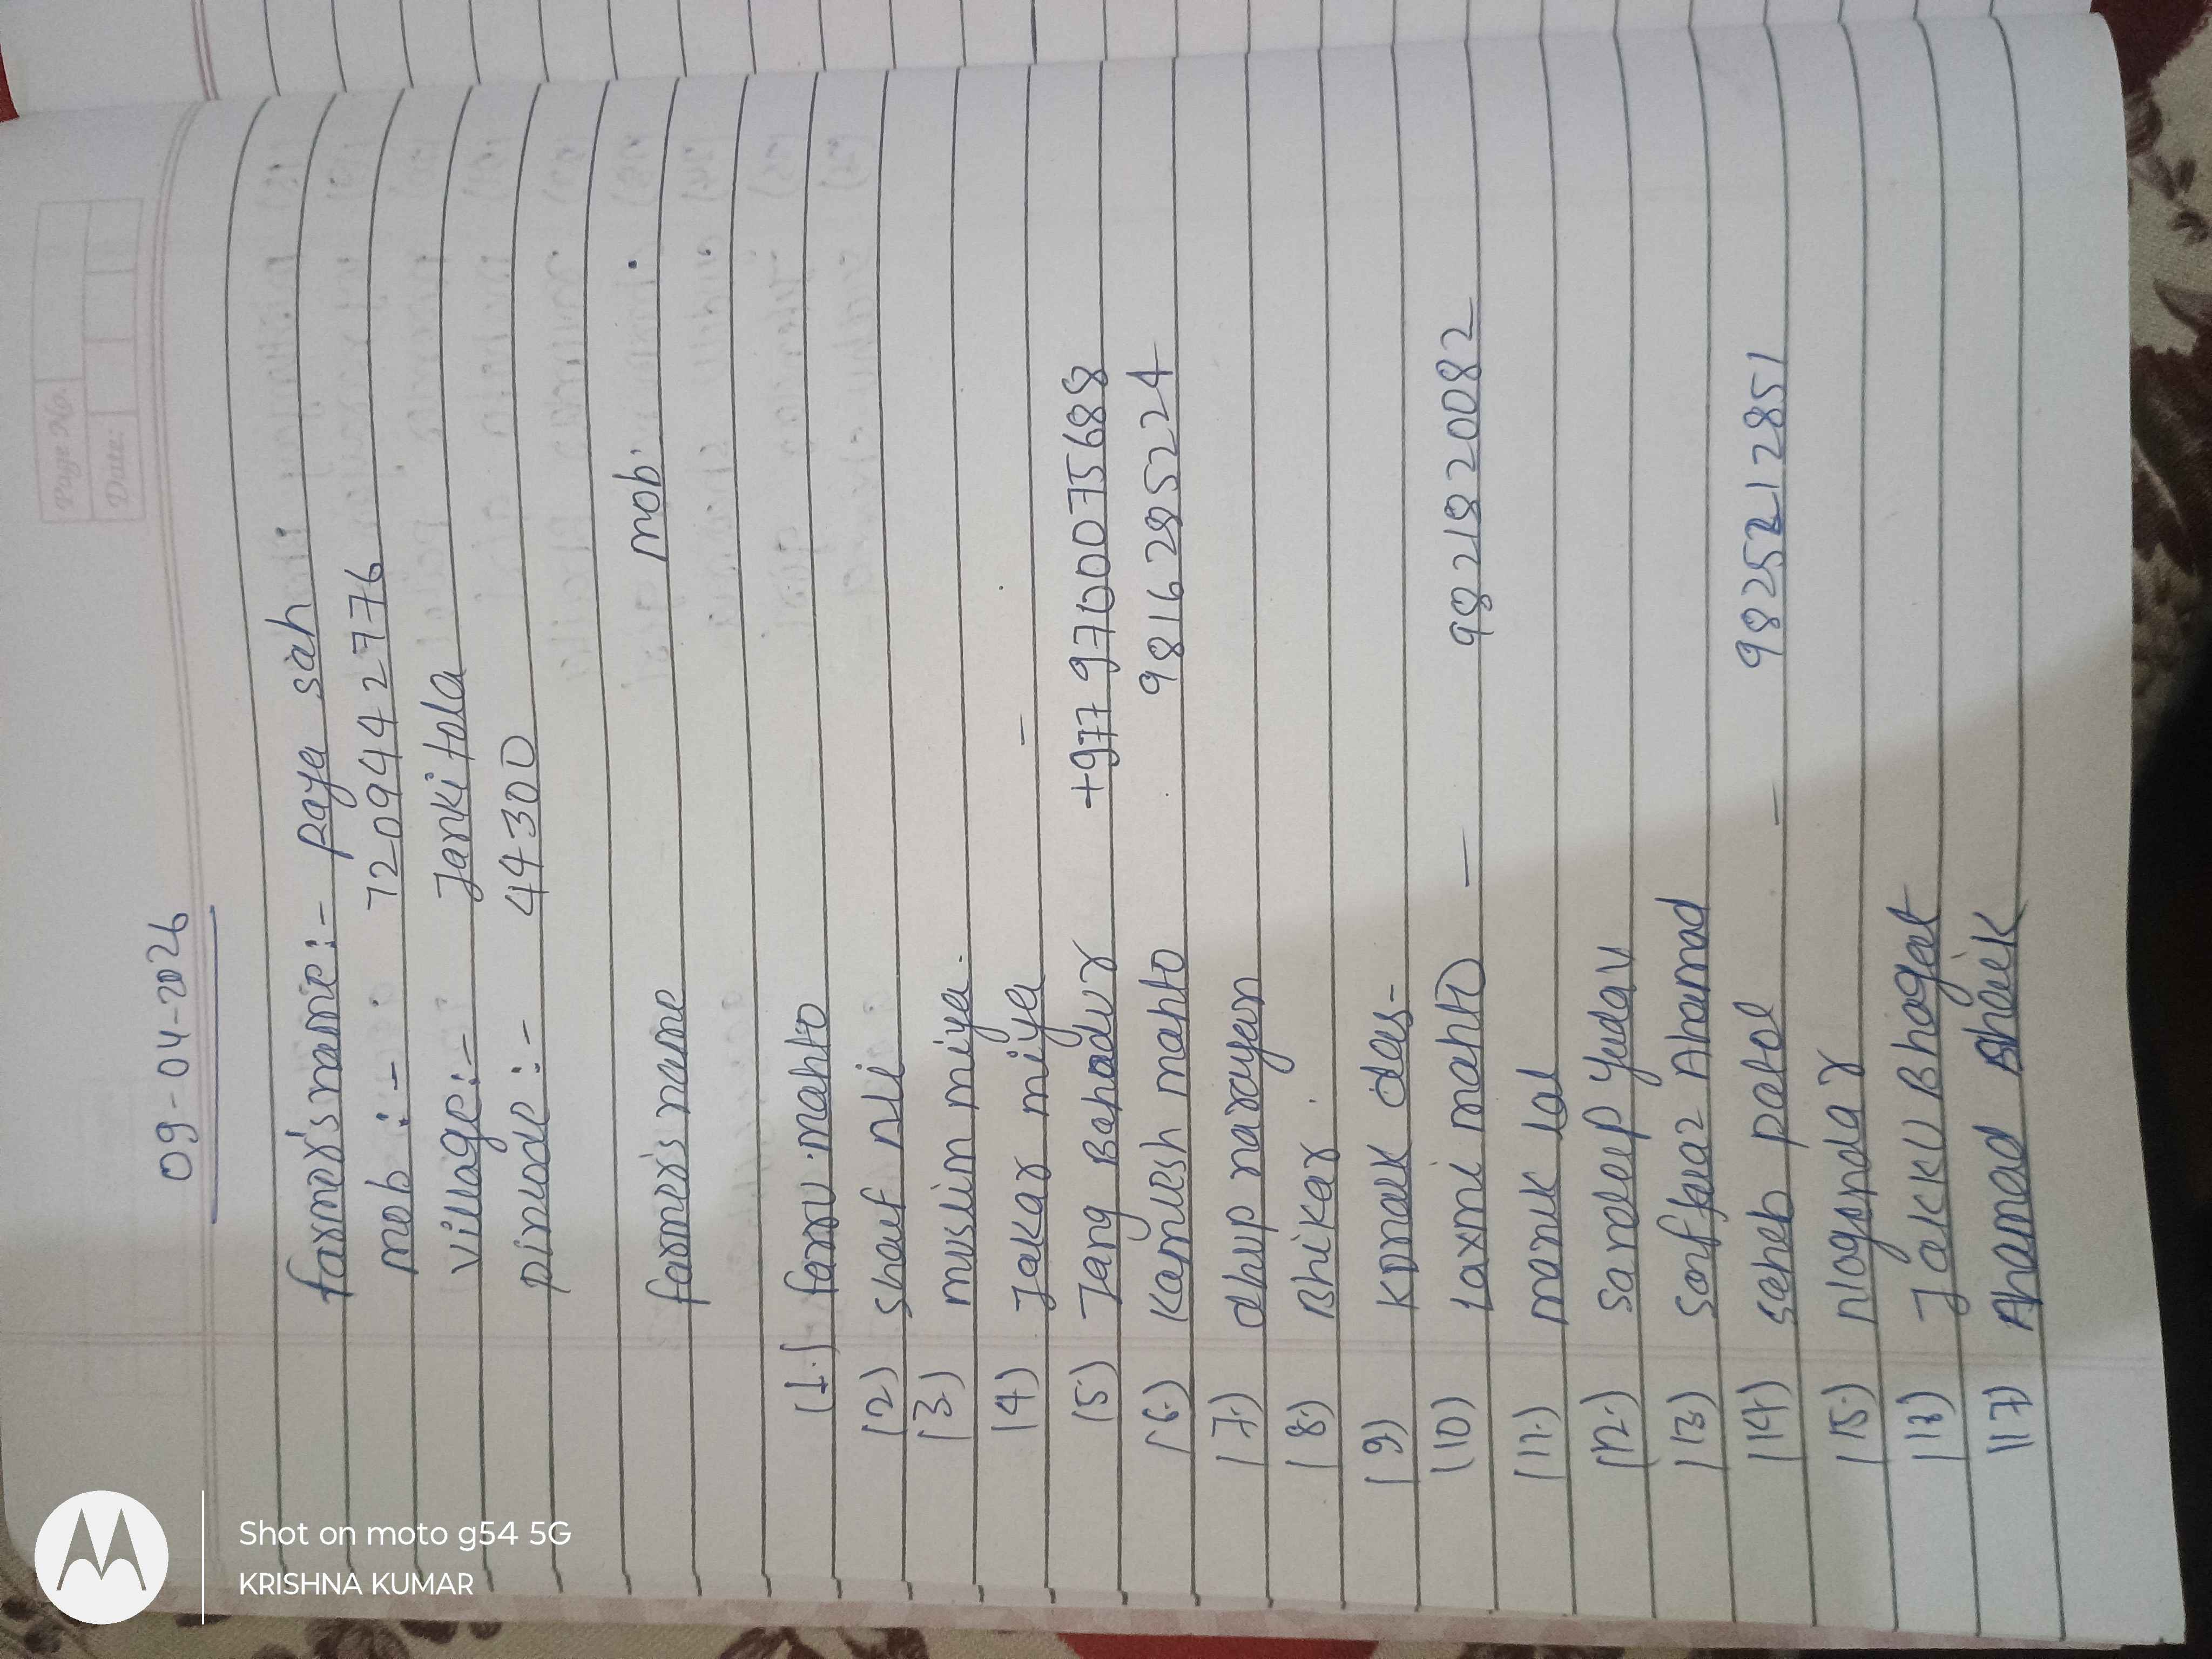 Page No.
Date:
09-04-2026
farmer's name:- paya sah
mob :- 7209442776
village:- Janki tola
pincode :- 44300
farmer's name mob.
(1.) mahto
(2) Shauf
(3.) muslim miya.
(4) Jakar miya -
(5) Jang Bahadur +977 9700075688
(6.) Kamlesh mahto 9816285224
(7.) dhup narayan
(8.) Bhikar.
(9) das-
(10) Laxmi mahto - 9821820082
(11.) manik Lal
(12.) Sandeep Yadav
(13.) Ahamad
(14) saheb patel - 9825212851
(15.) Nagendar
Jakku Bhagat
(17) Ahamad Shaik
Shot on moto g54 5G
KRISHNA KUMAR